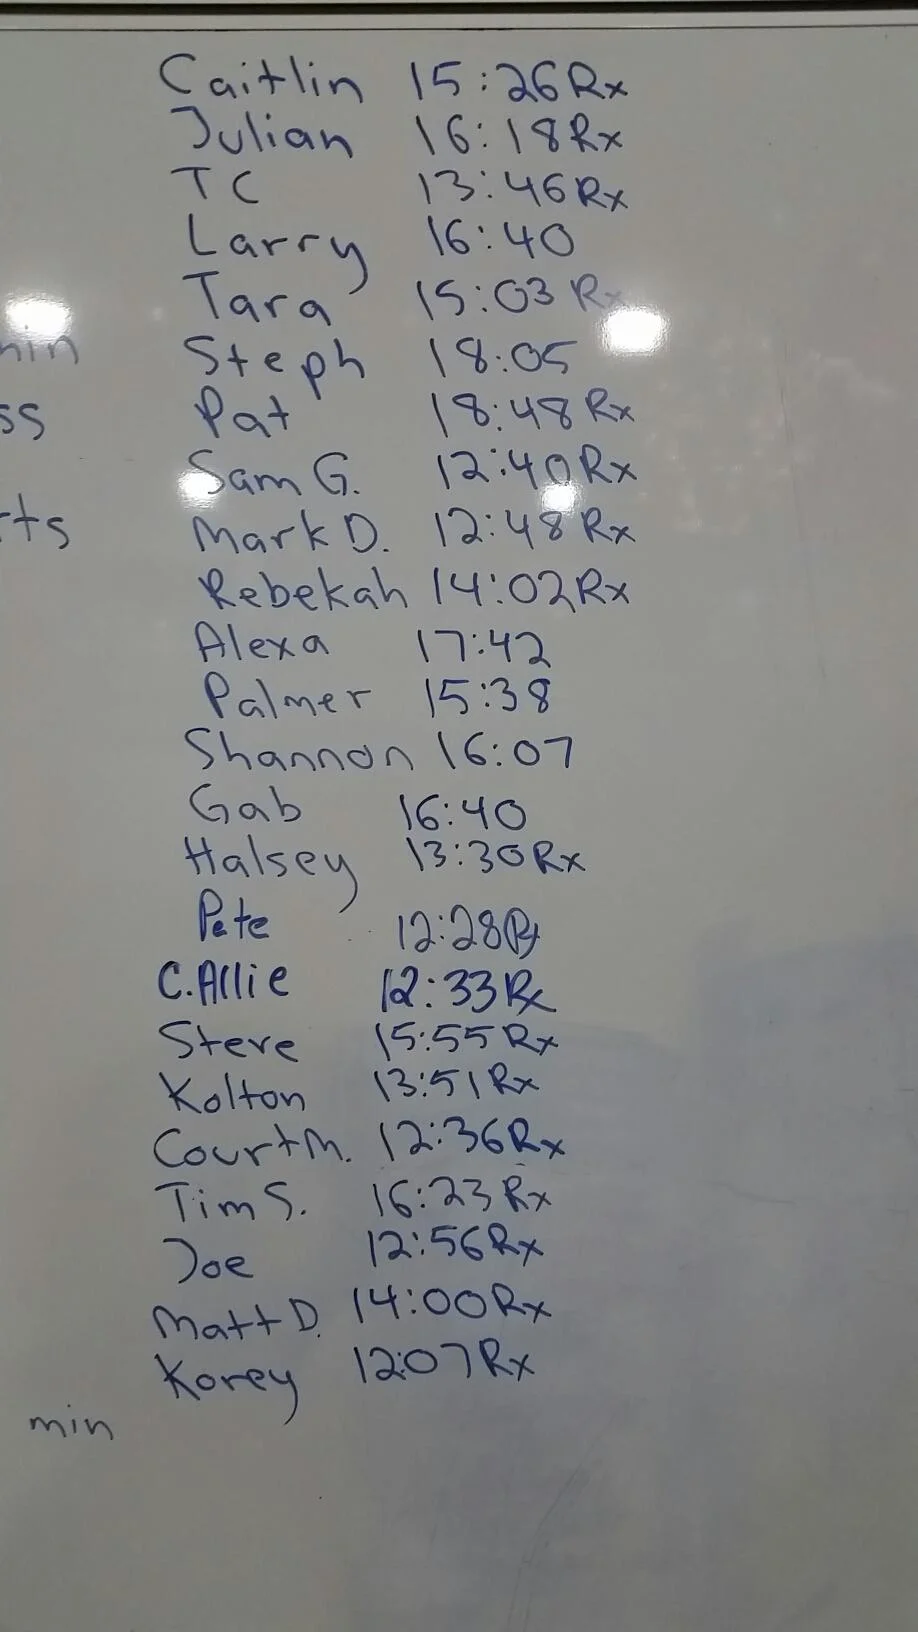 Caitlin 15:26Rx
Julian 16:18Rx
TC 13:46Rx
Larry 16:40
Tara 15:03 Rx
min
Steph 18:05
ss
Pat 18:48Rx
Sam G. 12:40Rx
rts
Mark D. 12:48Rx
Rebekah 14:02Rx
Alexa 17:42
Palmer 15:38
Shannon 16:07
Gab 16:40
Halsey 13:30Rx
Pete 12:28Rx
C.Allie 12:33Rx
Steve 15:55Rx
Kolton 13:51Rx
Court M. 12:36Rx
Tim S. 16:23Rx
Joe 12:56Rx
Matt D. 14:00Rx
Korey 12:07Rx
min